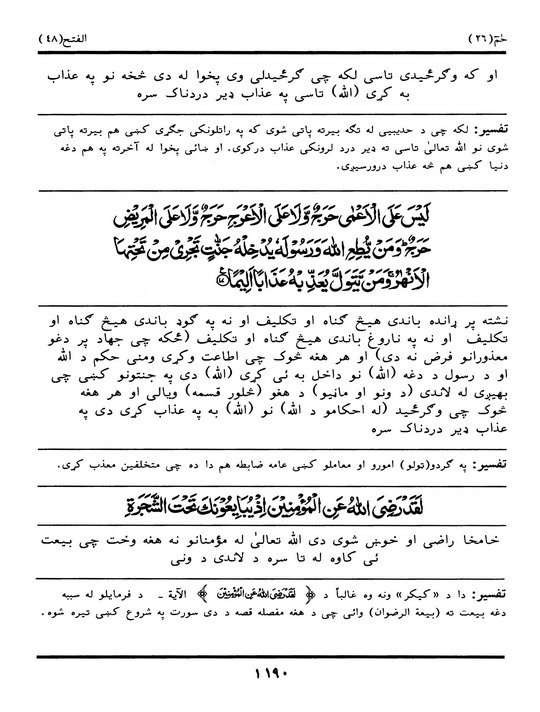 حٰمٓ (٢٦) الفتح(٤٨)
او که وګرځېدی تاسی لکه چې ګرځیدلی وی پخوا له دی څخه نو په عذاب
به کړی (الله) تاسی په عذاب ډیر دردناک سره
تفسیر: لکه چې د حدیبیی له تګه بیرته پاتی شوی که په راتلونکی جګړی کښی هم بیرته پاتی
شوی نو الله تعالیٰ تاسی ته ډیر درد لرونکی عذاب درکوی. او ښائی پخوا له آخرته په هم دغه
دنیا کښی هم څه عذاب درورسیږی.
لَيْسَ عَلَى الْاَعْمٰى حَرَجٌ وَّلَا عَلَى الْاَعْرَجِ حَرَجٌ وَّلَا عَلَى الْمَرِيْضِ
حَرَجٌ وَمَنْ يُّطِعِ اللّٰهَ وَرَسُوْلَهٗ يُدْخِلْهُ جَنّٰتٍ تَجْرِىْ مِنْ تَحْتِهَا
الْاَنْهٰرُ وَمَنْ يَّتَوَلَّ يُعَذِّبْهُ عَذَابًا اَلِيْمًا ﴿١٧﴾
نشته پر ړانده باندی هیڅ ګناه او تکلیف او نه په ګوډ باندی هیڅ ګناه او
تکلیف او نه په ناروغ باندی هیڅ ګناه او تکلیف (ځکه چی جهاد پر دغو
معذورانو فرض نه دی) او هر هغه څوک چی اطاعت وکړی ومنی حکم د الله
او د رسول د دغه (الله) نو داخل به ئی کړی (الله) دی په جنتونو کښی چی
بهیږی له لاندی (د ونو او مانیو) د هغو (څلور قسمه) ویالی او هر هغه
څوک چی وګرځید (له احکامو د الله) نو (الله) به په عذاب کړی دی په
عذاب ډیر دردناک سره
تفسیر: په ګردو(ټولو) امورو او معاملو کښی عامه ضابطه هم دا ده چی متخلفین معذب کړی.
لَقَدْ رَضِىَ اللّٰهُ عَنِ الْمُؤْمِنِيْنَ اِذْ يُبَايِعُوْنَكَ تَحْتَ الشَّجَرَةِ
خامخا راضی او خوښ شوی دی الله تعالیٰ له مؤمنانو نه هغه وخت چی بیعت
ئی کاوه له تا سره د لاندی د ونی
تفسیر: دا د «کیکر» ونه وه غالباً د ﴿لَقَدْ رَضِىَ اللّٰهُ عَنِ الْمُؤْمِنِيْنَ﴾ الآیة - د فرمایلو له سببه
دغه بیعت ته (بیعة الرضوان) وائی چی د هغه مفصله قصه د دی سورت په شروع کښی تیره شوه.
١١٩٠